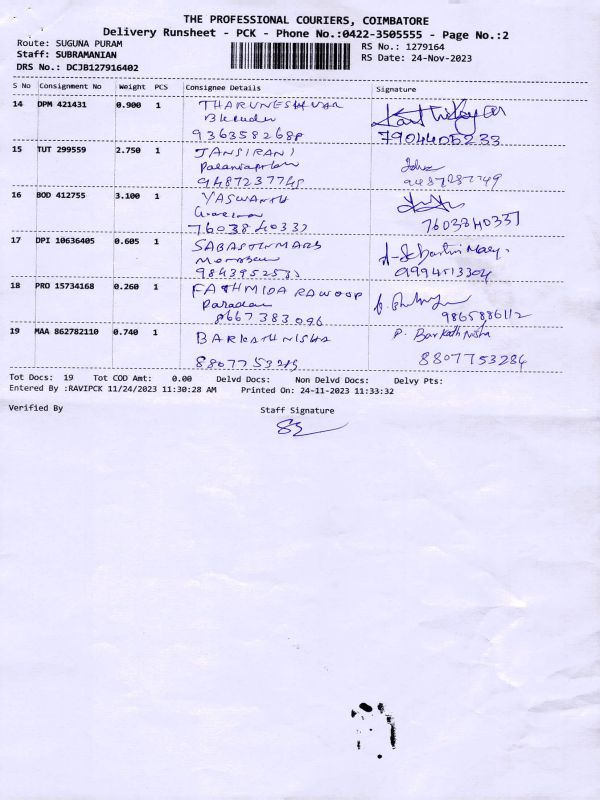 THE PROFESSIONAL COURIERS, COIMBATORE
Delivery Runsheet - PCK - Phone No.:0422-3505555 - Page No.:2
Route: SUGUNA PURAM
RS No.: 1279164
Staff: SUBRAMANIAN
RS Date: 24-Nov-2023
DRS No.: DCJB127916402
S No Consignment No Weight PCS Consignee Details Signature
14 DPM 421431 0.900 1 THARUNESHWAR
7904405233
15 TUT 299559 2.750 1 JANSIRANI
9487237749
16 BOD 412755 3.100 1 YASWANTH
7603840337 7603840337
17 DPI 10636405 0.605 1 SABASTINMARS
9994513304
18 PRO 15734168 0.260 1 FATHMIDA RAWOOP
9667383096 9865886112
19 MAA 862782110 0.740 1 BARKATH NISHA P. Barkath Nisha
8807753284
Tot Docs: 19 Tot COD Amt: 0.00 Delvd Docs: Non Delvd Docs: Delvy Pts:
Entered By :RAVIPCK 11/24/2023 11:30:28 AM Printed On: 24-11-2023 11:33:32
Verified By Staff Signature